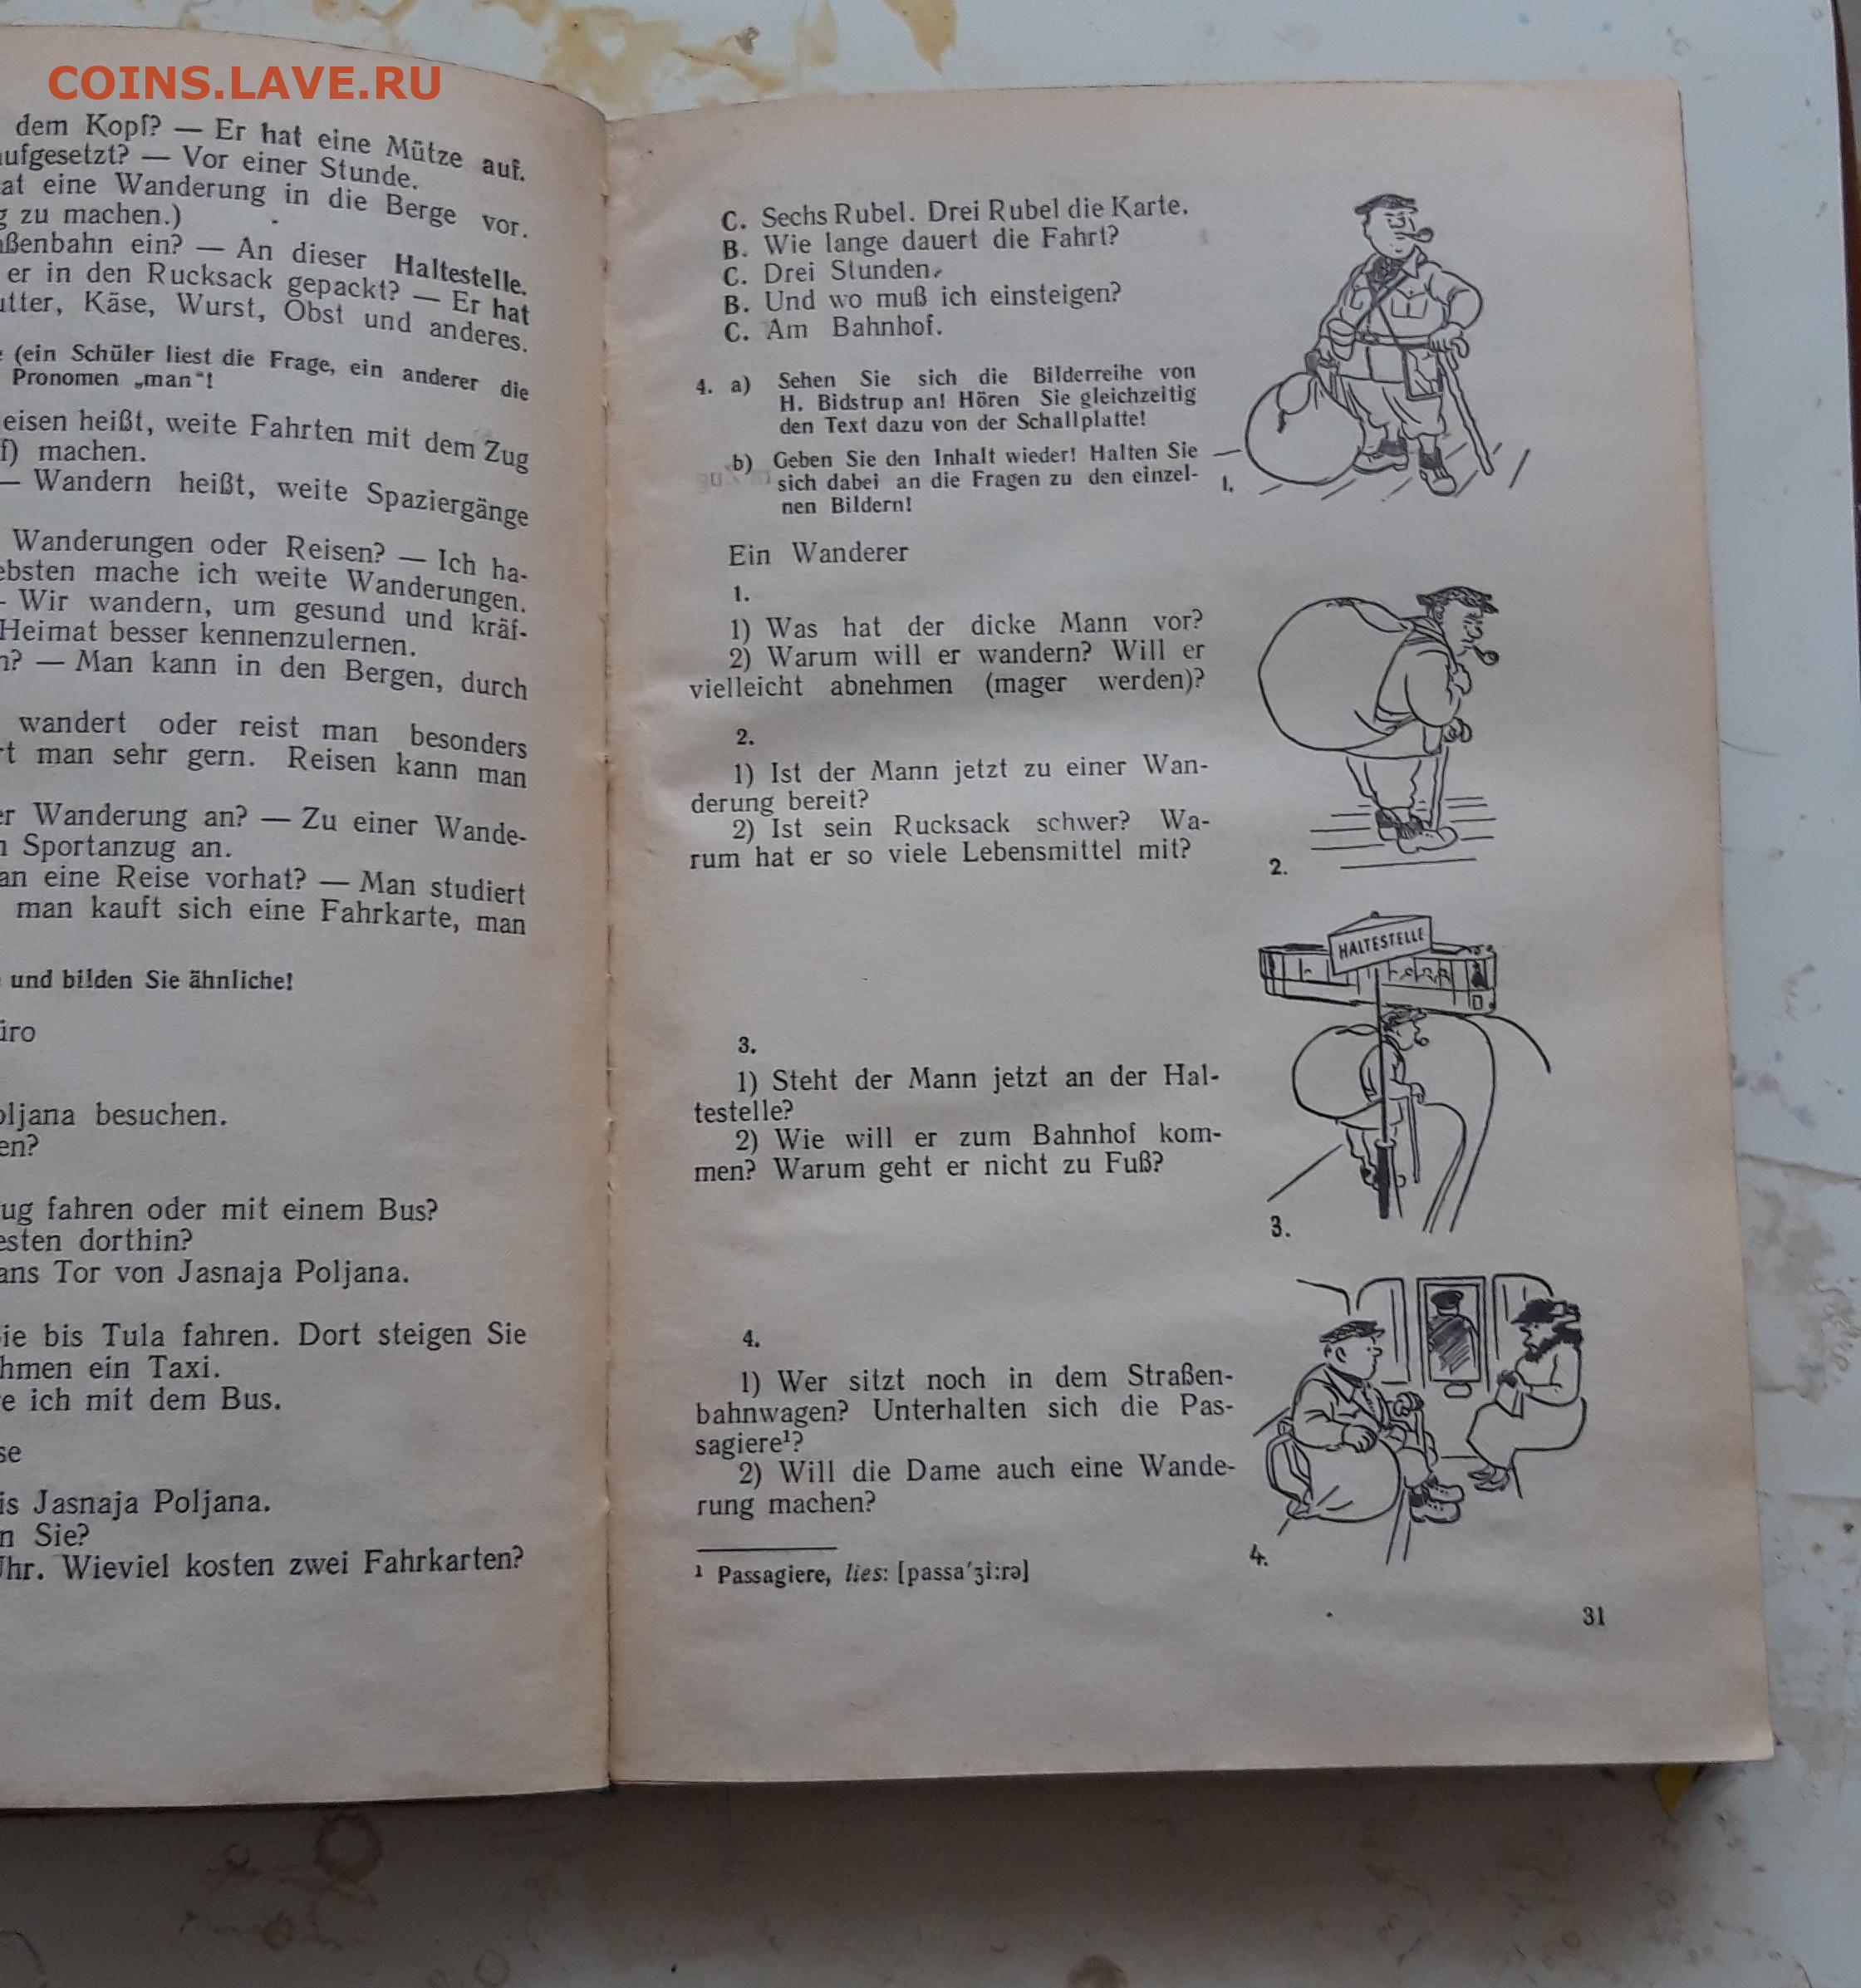 COINS.LAVE.RU
dem Kopf? — Er hat eine Mütze auf.
aufgesetzt? — Vor einer Stunde.
at eine Wanderung in die Berge vor.
zu machen.)
aßenbahn ein? — An dieser Haltestelle.
er in den Rucksack gepackt? — Er hat
utter, Käse, Wurst, Obst und anderes.
(ein Schüler liest die Frage, ein anderer die
Pronomen „man“!
eisen heißt, weite Fahrten mit dem Zug
f) machen.
— Wandern heißt, weite Spaziergänge
Wanderungen oder Reisen? — Ich ha-
ebsten mache ich weite Wanderungen.
- Wir wandern, um gesund und kräf-
Heimat besser kennenzulernen.
n? — Man kann in den Bergen, durch
wandert oder reist man besonders
rt man sehr gern. Reisen kann man
er Wanderung an? — Zu einer Wande-
n Sportanzug an.
an eine Reise vorhat? — Man studiert
man kauft sich eine Fahrkarte, man
und bilden Sie ähnliche!
üro
oljana besuchen.
en?
ug fahren oder mit einem Bus?
esten dorthin?
ans Tor von Jasnaja Poljana.
ie bis Tula fahren. Dort steigen Sie
hmen ein Taxi.
e ich mit dem Bus.
se
is Jasnaja Poljana.
n Sie?
Uhr. Wieviel kosten zwei Fahrkarten?
C. Sechs Rubel. Drei Rubel die Karte.
B. Wie lange dauert die Fahrt?
C. Drei Stunden.
B. Und wo muß ich einsteigen?
C. Am Bahnhof.
4. a) Sehen Sie sich die Bilderreihe von
H. Bidstrup an! Hören Sie gleichzeitig
den Text dazu von der Schallplatte!
b) Geben Sie den Inhalt wieder! Halten Sie
sich dabei an die Fragen zu den einzel-
nen Bildern!
1.
Ein Wanderer
1.
1) Was hat der dicke Mann vor?
2) Warum will er wandern? Will er
vielleicht abnehmen (mager werden)?
2.
1) Ist der Mann jetzt zu einer Wan-
derung bereit?
2) Ist sein Rucksack schwer? Wa-
rum hat er so viele Lebensmittel mit?
2.
HALTESTELLE
3.
1) Steht der Mann jetzt an der Hal-
testelle?
2) Wie will er zum Bahnhof kom-
men? Warum geht er nicht zu Fuß?
3.
4.
1) Wer sitzt noch in dem Straßen-
bahnwagen? Unterhalten sich die Pas-
sagiere¹?
2) Will die Dame auch eine Wande-
rung machen?
4.
¹ Passagiere, lies: [passaˈʒi:rə]
31